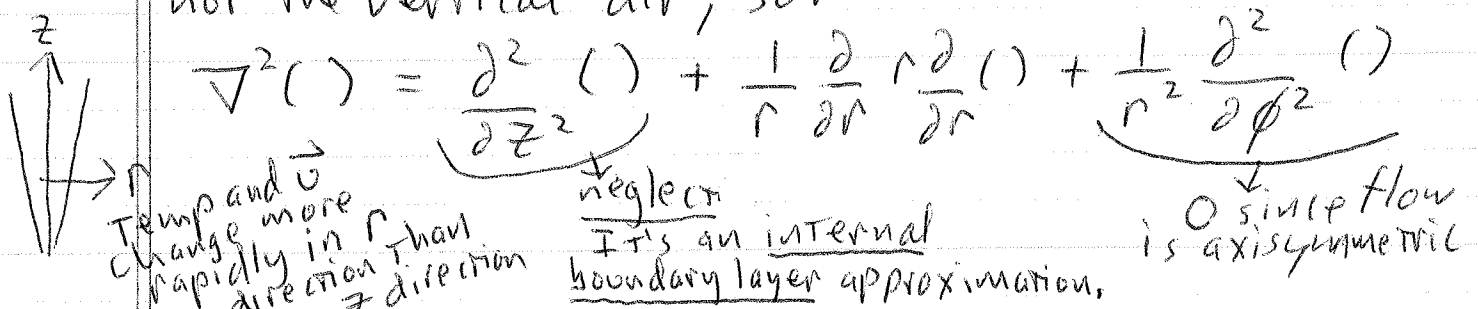 not the vertical dir, so
z
∇²( ) = ∂²/∂z² ( ) + 1/r ∂/∂r r ∂/∂r ( ) + 1/r² ∂²/∂φ² ( )
r
Temp and υ⃗
change more
rapidly in r
direction than
z direction
neglect
It's an internal
boundary layer approximation.
0 since flow
is axisymmetric